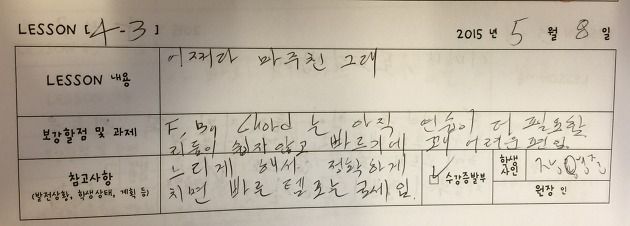 LESSON [4-3]
2015 년 5 월 8 일
LESSON 내용
어쩌다 마주친 그대
보강할점 및 과제
F, Chord 는 아직 연습이 더 필요함
리듬이 쉽지않고 빠르기에 꽤 어려운 편임.
참고사항
(발전상황, 학생상태, 계획 등)
느리게 해서 정확하게
치면 바른 템포는 금세 임.
수강증발부
학생
사인
원장 인